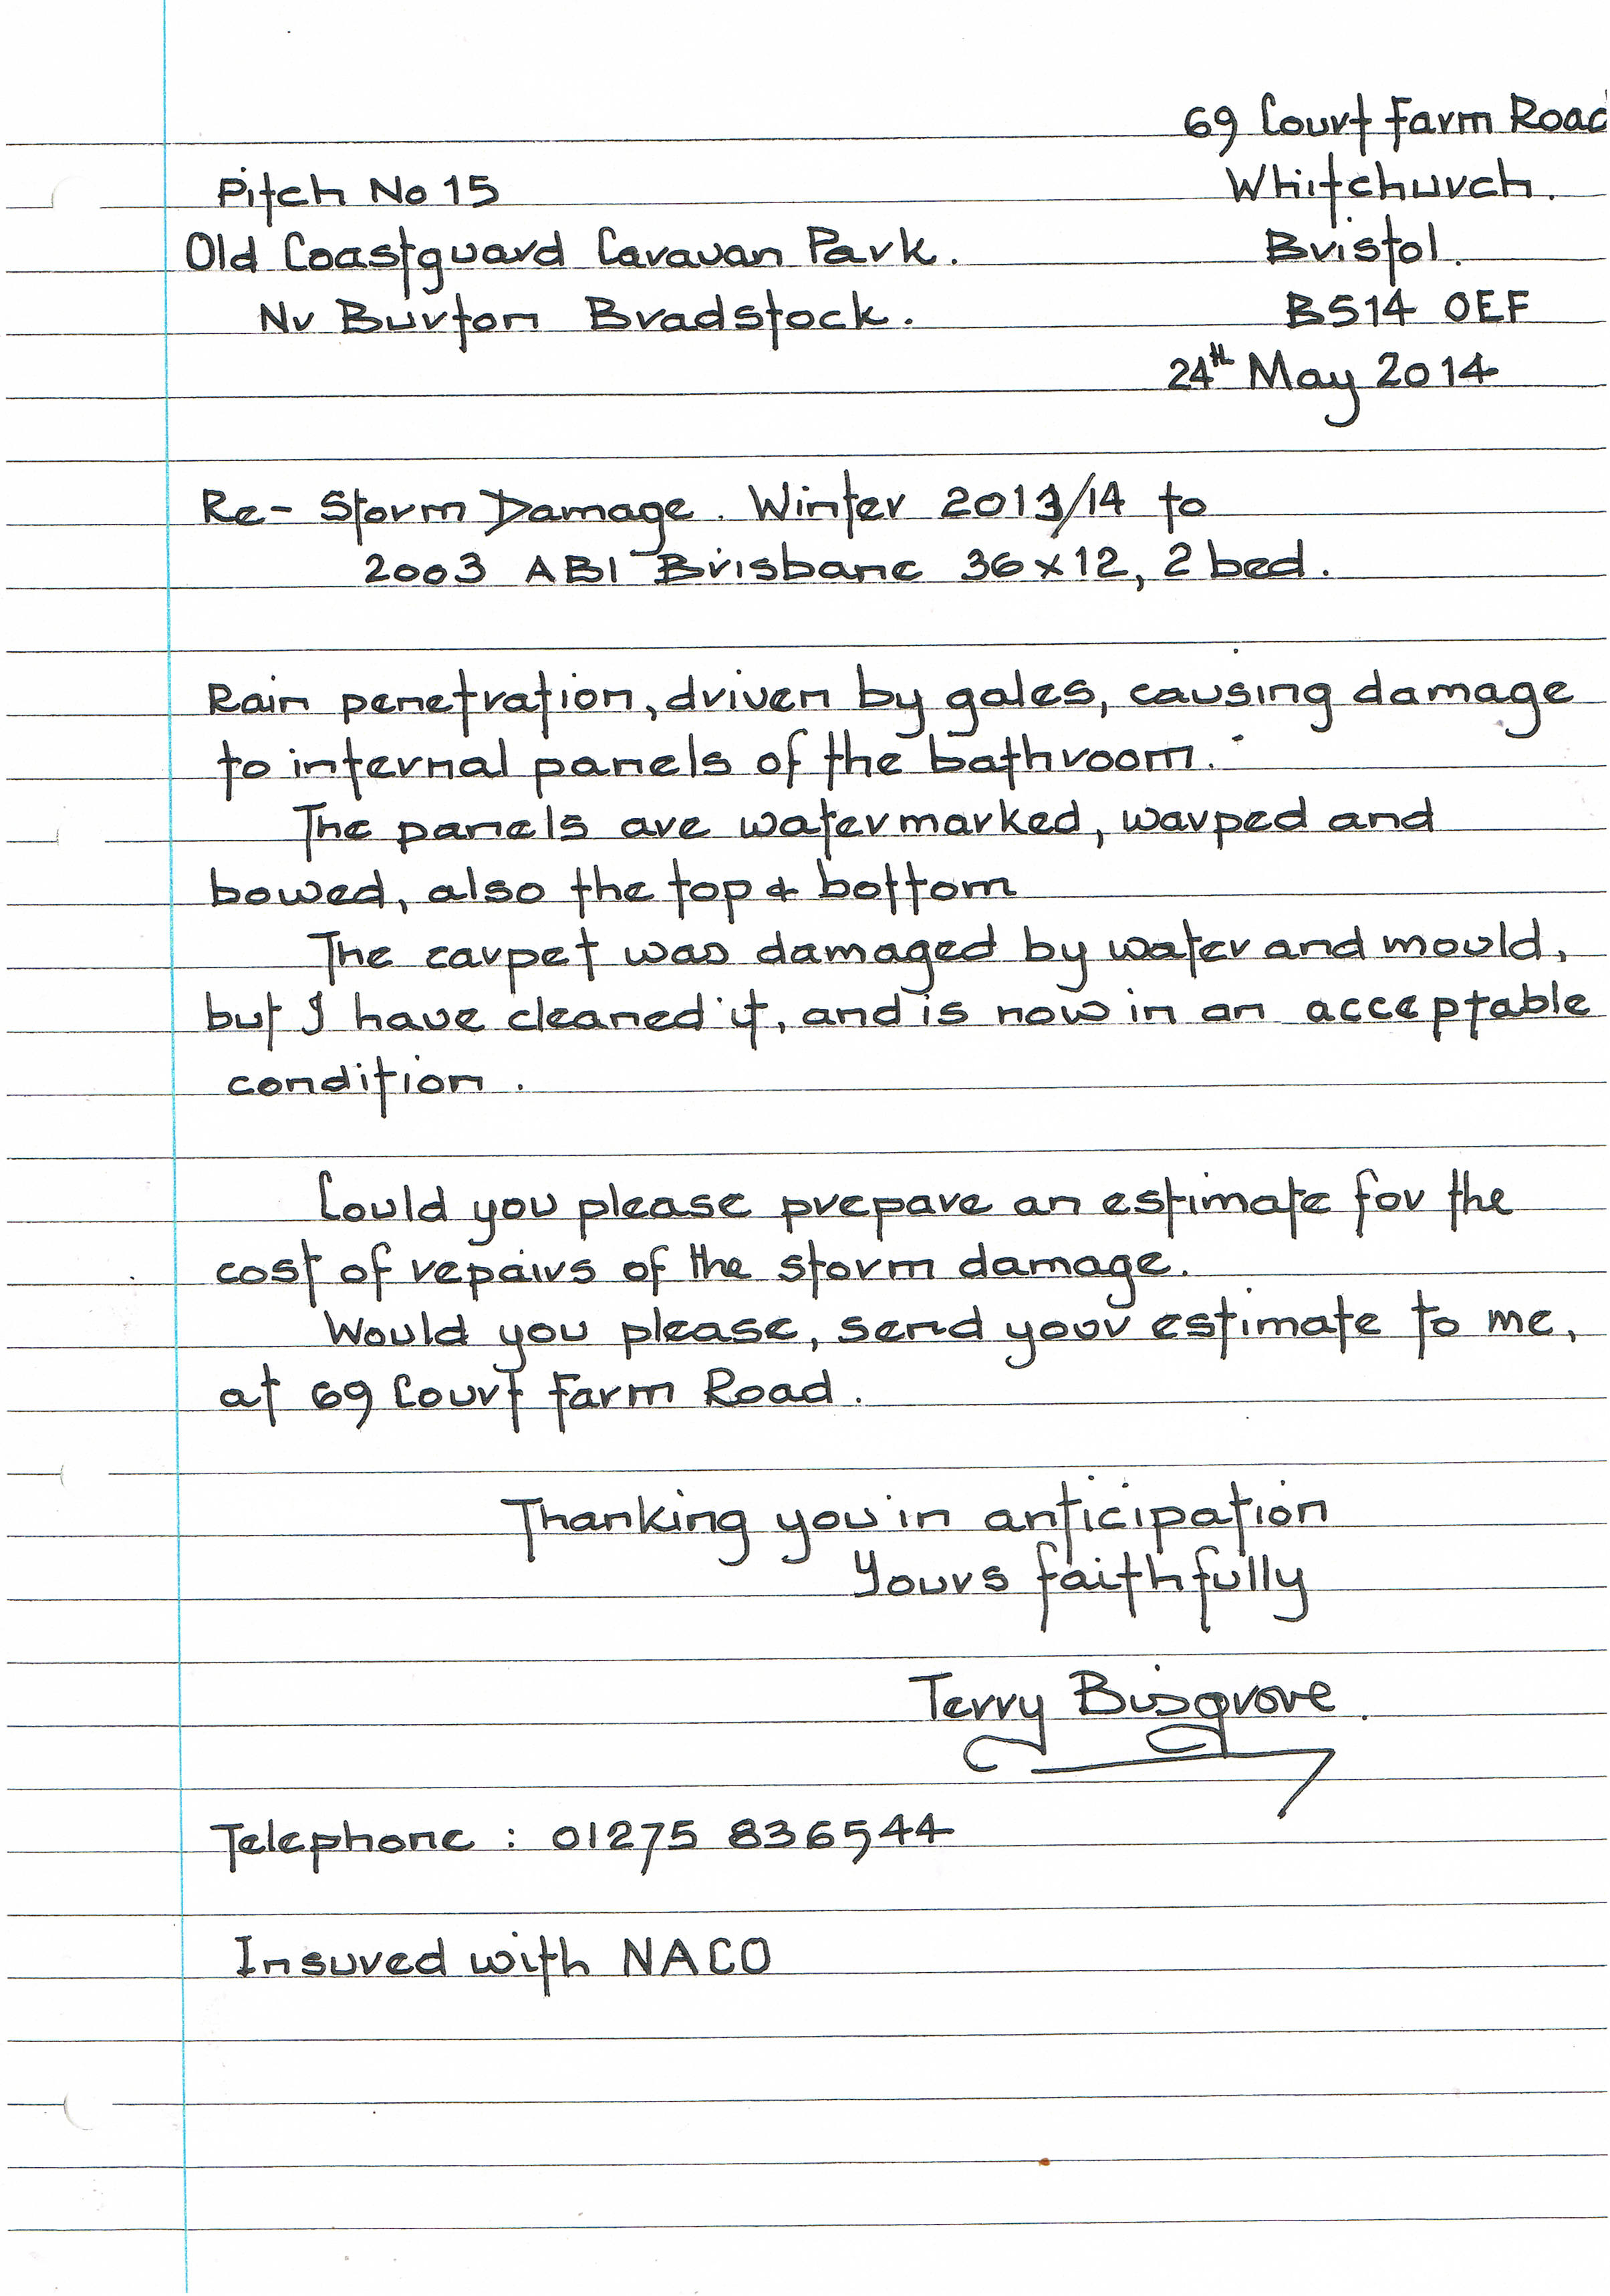 69 Court Farm Road
Whitchurch.
Bristol.
BS14 0EF
24th May 2014
Pitch No 15
Old Coastguard Caravan Park.
Nr Burton Bradstock.
Re- Storm Damage. Winter 2013/14 to
2003 ABI Brisbane 36x12, 2 bed.
Rain penetration, driven by gales, causing damage
to internal panels of the bathroom.
The panels are watermarked, warped and
bowed, also the top & bottom
The carpet was damaged by water and mould,
but I have cleaned it, and is now in an acceptable
condition.
Could you please prepare an estimate for the
cost of repairs of the storm damage.
Would you please, send your estimate to me,
at 69 Court Farm Road.
Thanking you in anticipation
Yours faithfully
Terry Bisgrove.
Telephone : 01275 836544
Insured with NACO